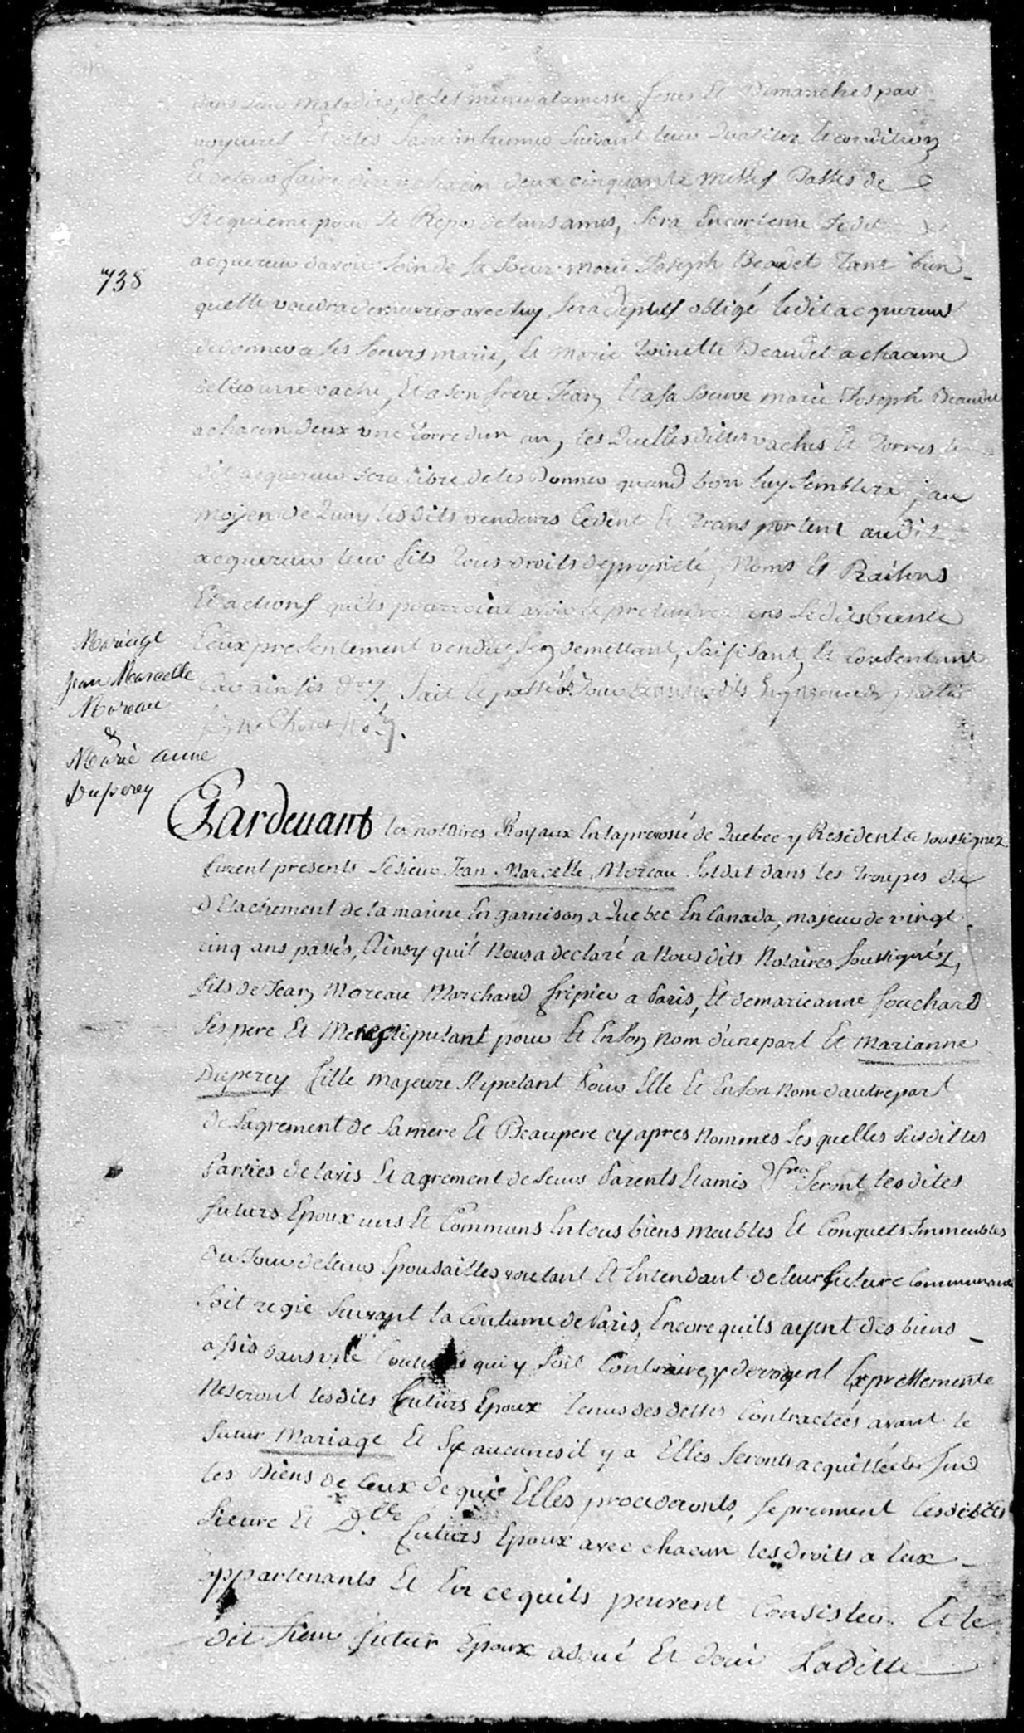 dans leur maladies, de les mener a la messe festes Et Dimanches par
Suivant leur quallitez Et condition
Et de leur faire dire a chacun deux cinquante Messes Basses de
Requiem pour le Repos de leurs ames, Sera Encore tenu Ledit
acquereur davoir Soin de Sa Soeur Marie Joseph Beaudet Tant bien
738
quelle voudra demeurer avec luy, Sera deplus obligé Ledit acquereur
de donner a Ses Soeurs marie, Et Marie Toinette Beaudet a chacune
delles une vache, Et a Son frere Jean Et a Sa Soeur marie Joseph Beaudet
a chacun deux une Torre dun an, Les Quelles dittes vaches Et Torres Le
dit acquereur Sera libre de les Donner quand bon luy Semblera, / au
moyen de Quoy Lesdits vendeurs Cedent Et Transportent audit
acquereur leur fils Tous droits de proprieté, Noms Et Raisons
Et actions quils pourroient avoir Et pretendre Ledit
Ceux presentement vendus, Sen demettant, Saisissant, Et Consentant
Fait Et passé
Mariage
Jean Marcelle
Moreau
&
Marie anne
Duperey
Pardevant les notaires Royaux En la prevosté de Quebec y Resident & Soussignez
furent presents Le Sieur Jean Marcelle Moreau Soldat dans les Troupes du
Detachement de la marine En garnison a Quebec En Canada, majeur de vingt
cinq ans passés, Ainsy quil Nous a declaré a Nous dits Notaires Soussignéz,
fils de Jean Moreau Marchand fripier a Paris, Et de marieanne fouchard
Ses pere Et Mere Stipulant pour Et En Son Nom dune part Et Marianne
Duperey fille majeure Stipulant Pour Elle Et En Son Nom dautre part
de Lagrement de Sa mere Et Beaupere cy apres Nommés Les quelles Susdittes
Parties de Lavis Et agrement de Leurs Parents Et amis Seront Lesdites
futurs Epoux uns Et Communs En tous biens meubles Et Conquets Immeubles
du Jour de leurs Epousailles voulant Et Entendant de leur future Communauté
Soit regie Suivant la Coutume de Paris, Encore quils ayent des biens
assis dans une Coutume qui y Soit Contraire, y derogent Expressement
Ne seront lesdits futurs Epoux Tenus des dettes Contractées avant le
futur Mariage Et Sy aucunes il y a Elles Seront acquittées Sur
les Biens de Ceux de qui Elles procederont, Se prennent Lesdits
Sieure Et Dlle futurs Epoux avec chacun les droits a Eux
appartenants Et En ce quils peuvent Consister. Et le
dit Sieur futur Epoux adoué Et doüe Laditte